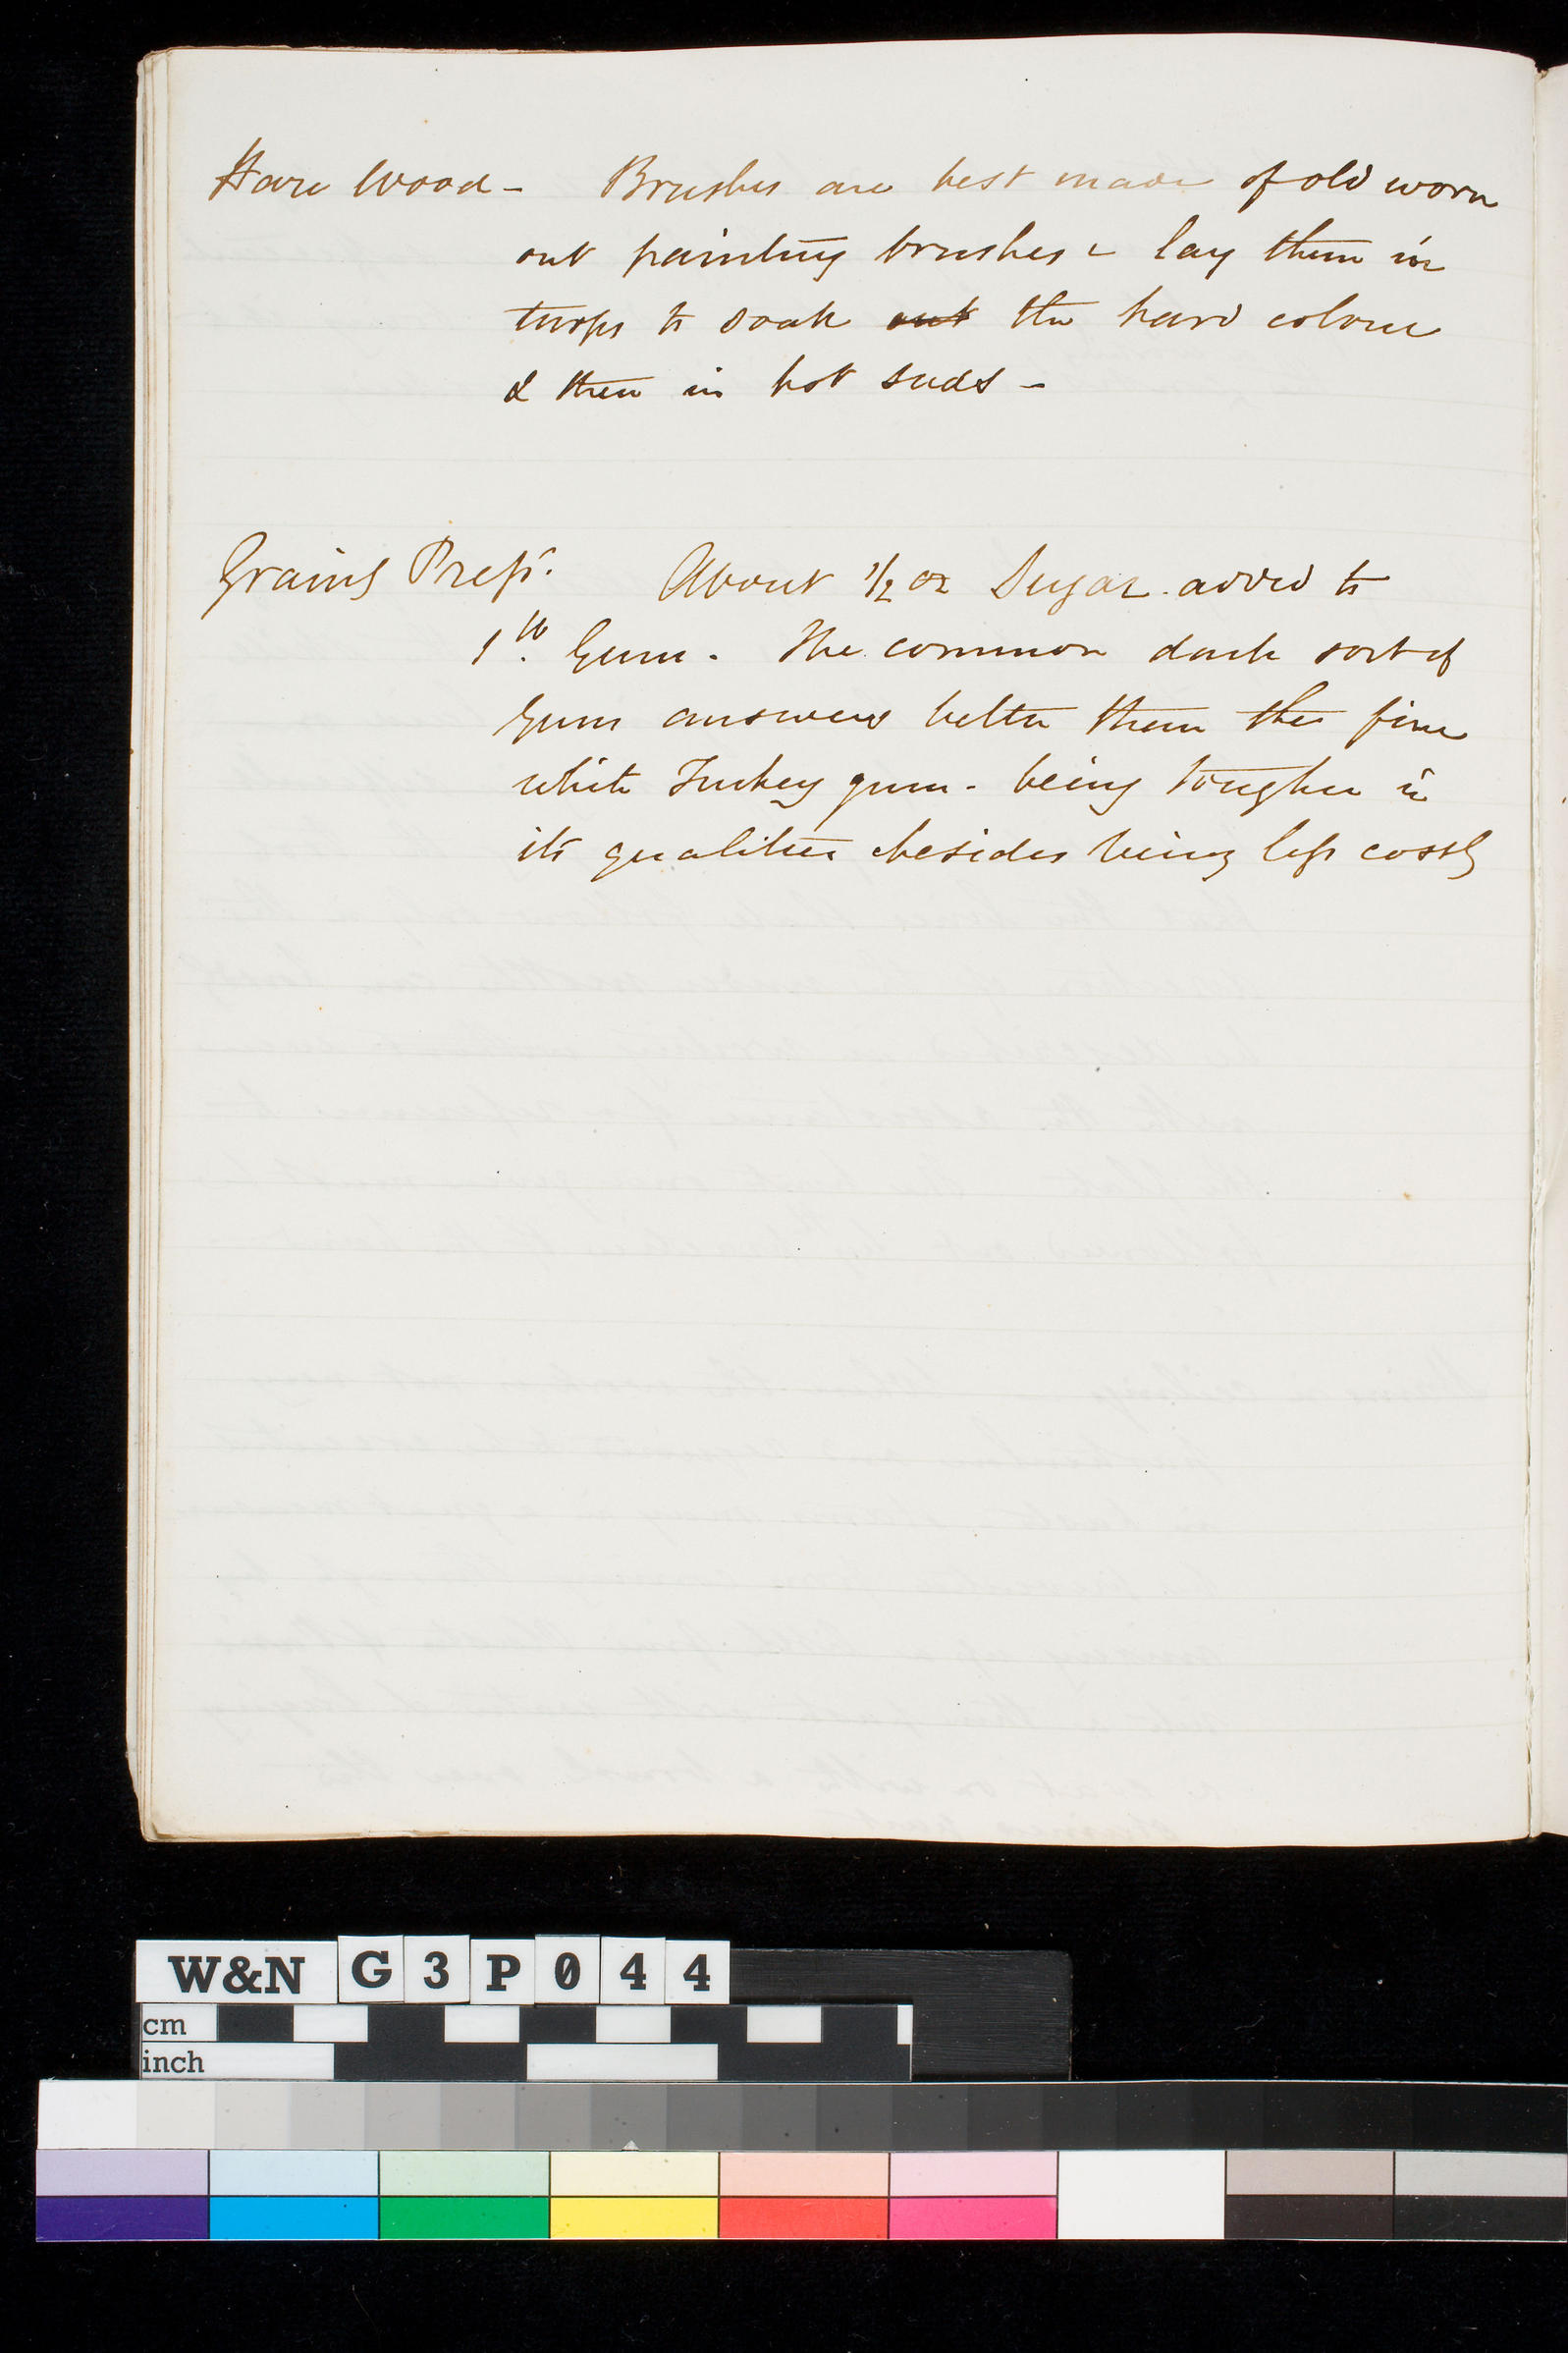 Hare Wood - Brushes are best made of old worn
out painting brushes & lay them in
turps to soak out the hard colour
& then in hot suds -
Graing Prepn. About 1/2 oz Sugar added to
1 lb. Gum. The common dark sort of
gum answers better than the fine
white Turkey gum. being tougher in
its qualities besides being less costly
W&N G3P044
cm
inch